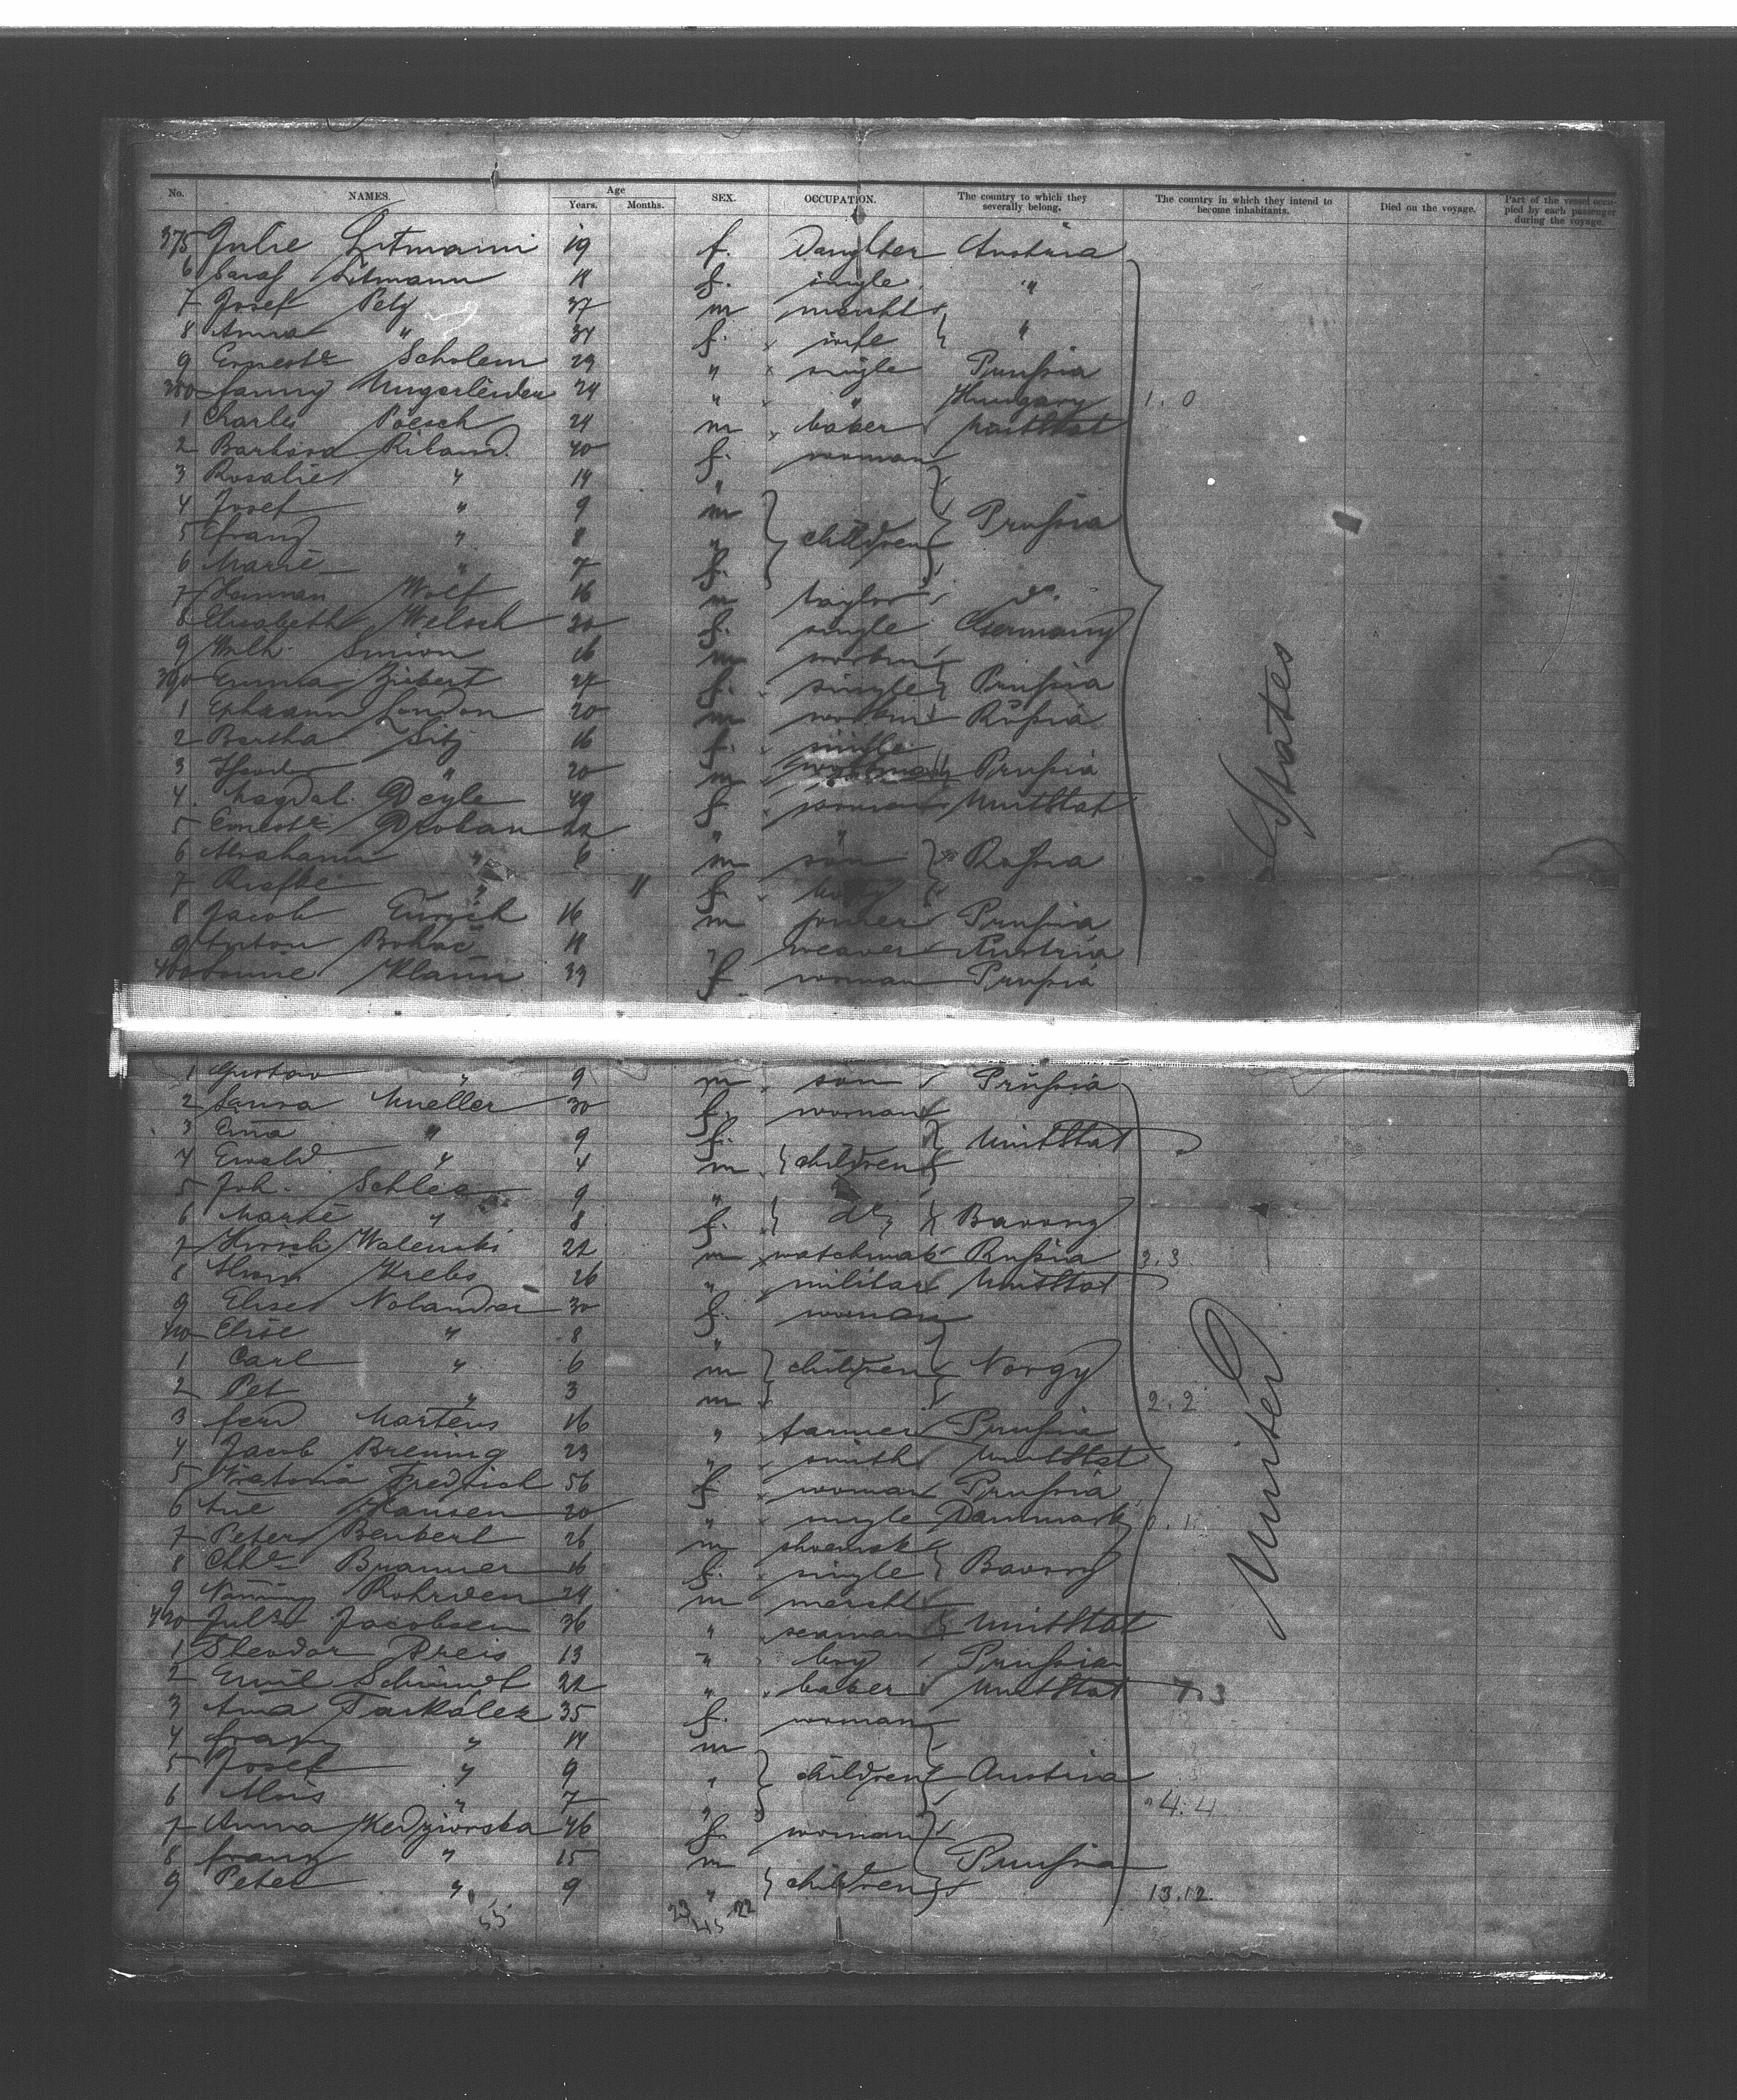 No. NAMES. Age Years. Months. SEX. OCCUPATION. The country to which they severally belong. The country in which they intend to become inhabitants. Died on the voyage. Part of the vessel occupied by each passenger during the voyage.
375 Julie Litmann 19 f. Daughter Austria
6 Sarah Litmann 18 f. single "
7 Josef Pely 37 m mercht
8 Anna " 34 f. wife "
9 Ernest Scholem 29 " single Prußia
380 fanny Ungerleider 24 " " Hungary 1. 0
1 Charles Poesch 24 m baker UnitStat
2 Barbara Riband. 40 f. woman
3 Rosalie " 14 "
4 Josef " 9 m Prußia
5 franz " 8 " children
6 Marie " 7 f.
7 Herman Wolf 16 m taylor do.
8 Elisabeth Welsch 20 f. single Germany
9 Wilh. Simon 16 m workm
390 Emma Zibert 27 f. single Prußia
1 Ephraim London 20 m workm Rußia
2 Bertha Sitz 16 f. single
3 " 20 m Prußia
4 Magdal. Deyle 49 f. woman UnitStat
5 Droban 22 " "
6 Abraham " 6 m son Rußia
7 " 11 f. baby
8 Jacob 16 m joiner Prußia
9 Anton Bohac 18 " weaver Austria
400 Klann 33 f woman Prußia
1 Gustav " 9 m son Prußia
2 Laura Mueller 30 f. woman
3 Ema " 9 f. UnitStat
4 Ewald " 4 m children
5 Joh. 9 "
6 Marie " 8 f. do Bavary
7 Hirsch Walenski 22 m watchmak Rußia 2. 3
8 Krebs 26 " militar UnitStat
9 Elise Nolander 30 f. woman
410 Elise " 8 "
1 Carl " 6 m children Norgy
2 Pet " 3 m 2. 2
3 ferd Martens 16 " farmer Prußia
4 Jacob Brening 23 " smith UnitStat
5 Victoria Fredrich 56 f. woman Prußia
6 Hansen 20 " single Danmark 0. 1.
7 Peter Benbert 26 m shoemak
8 Brunner 16 f. single Bavary
9 Rohrden 24 m mercht
420 Juls Jacobsen 36 " seaman UnitStat
1 Theodor Preis 13 " boy Prußia
2 Emil Schmidt 22 " baker UnitStat 7. 3
3 Ana Taskalek 35 f. woman
4 franz " 14 m
5 Josef " 9 " children Austria
6 Alois " 7 " 4. 4
7 Anna Kedziorska 46 f. woman
8 franz " 15 m Prußia
9 Peter " 9 " children 13. 12.
55 23 45 22
United States